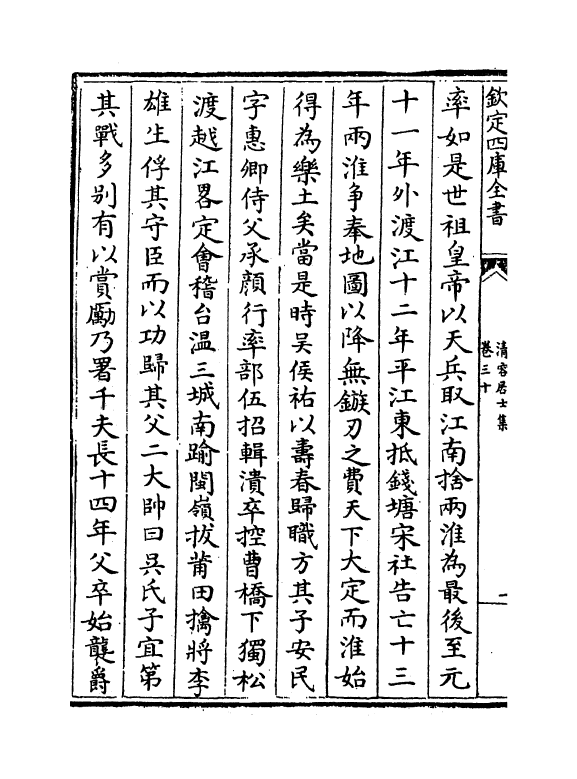 欽定四庫全書
清容居士集
卷三十
二
率如是世祖皇帝以天兵取江南捨兩淮為最後至元
十一年外渡江十二年平江東抵錢塘宋社告亡十三
年兩淮爭奉地圖以降無鏃刃之費天下大定而淮始
得為樂土矣當是時吴侯祐以壽春歸職方其子安民
字惠卿侍父承顔行率部伍招輯潰卒控曹橋下獨松
渡越江畧定會稽台温三城南踰閩嶺拔莆田擒將李
雄生俘其守臣而以功歸其父二大帥曰吴氏子宜第
其戰多别有以賞勵乃署千夫長十四年父卒始襲爵